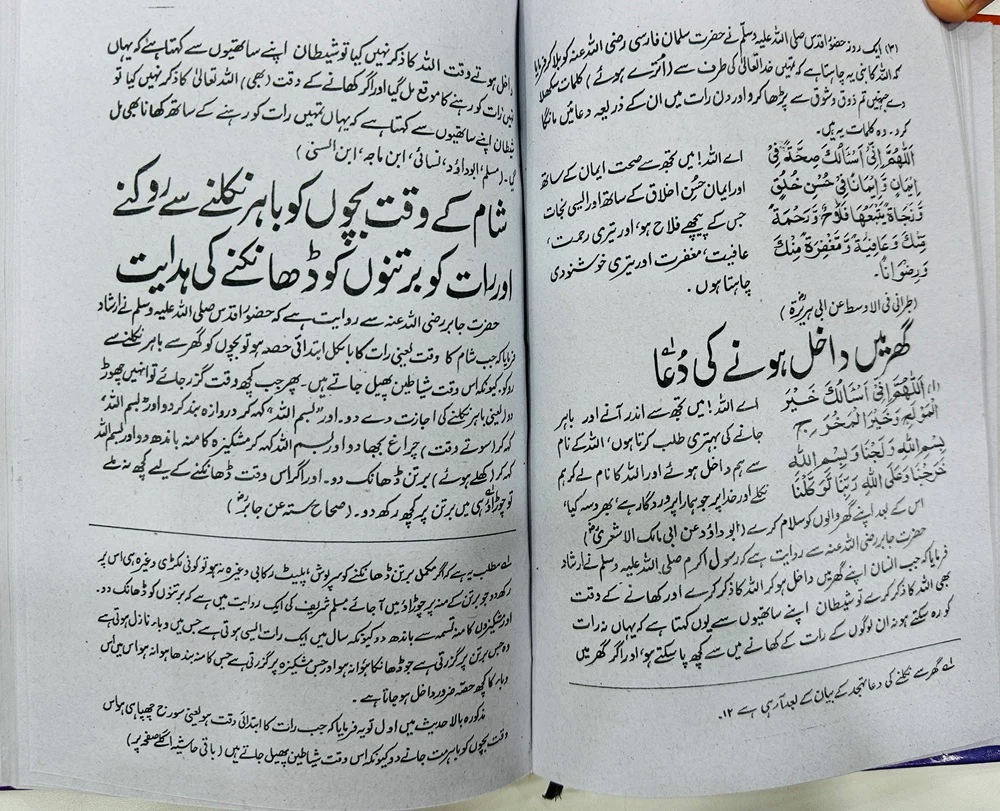 (۳) ایک روز حضور اقدس صلی اللہ علیہ وسلم نے حضرت سلمان فارسی رضی اللہ عنہ کو بلا کر فرمایا
کہ اللہ کا نبی یہ چاہتا ہے کہ تمہیں خدا تعالیٰ کی طرف سے (اُترے ہوئے) کلمات سکھلا
دے جنہیں تم ذوق و شوق سے پڑھا کرو اور دن رات میں ان کے ذریعہ دعائیں مانگا
کرو۔ وہ کلمات یہ ہیں۔
اَللّٰهُمَّ اِنِّیْ اَسْاَلُكَ صِحَّةً فِیْ
اِیْمَانٍ وَّاِیْمَانًا فِیْ حُسْنِ خُلُقٍ
وَّنَجَاةً یَّتْبَعُهَا فَلَاحٌ وَّرَحْمَةً
مِّنْكَ وَعَافِیَةً وَّمَغْفِرَةً مِّنْكَ
وَرِضْوَانًا۔
اے اللہ! میں تجھ سے صحت ایمان کے ساتھ
اور ایمان حُسنِ اخلاق کے ساتھ اور ایسی نجات
جس کے پیچھے فلاح ہو، اور تیری رحمت،
عافیت، مغفرت اور تیری خوشنودی
چاہتا ہوں۔
(طبرانی فی الاوسط عن ابی ہریرۃؓ)
گھر میں داخل ہونے کی دُعا
(۱) اَللّٰهُمَّ اِنِّیْ اَسْاَلُكَ خَیْرَ
الْمَوْلِجِ وَخَیْرَ الْمَخْرَجِ
بِسْمِ اللهِ وَلَجْنَا وَبِسْمِ اللهِ
خَرَجْنَا وَعَلَی اللهِ رَبِّنَا تَوَكَّلْنَا
اے اللہ! میں تجھ سے اندر آنے اور باہر
جانے کی بہتری طلب کرتا ہوں، اللہ کے نام
سے ہم داخل ہوئے اور اللہ کا نام لے کر ہم
نکلے اور خدا پر جو ہمارا پروردگار ہے، بھروسہ کیا،
اس کے بعد اپنے گھر والوں کو سلام کرے (ابوداؤد عن ابی مالک الاشعریؓ)
حضرت جابر رضی اللہ عنہ سے روایت ہے کہ رسول اکرم صلی اللہ علیہ وسلم نے ارشاد
فرمایا کہ جب انسان اپنے گھر میں داخل ہو کر اللہ کا ذکر کرے اور کھانے کے وقت
بھی اللہ کا ذکر کرے تو شیطان اپنے ساتھیوں سے یوں کہتا ہے کہ یہاں نہ رات
کو رہ سکتے ہو نہ ان لوگوں کے رات کے کھانے میں سے کچھ پا سکتے ہو، اور اگر گھر میں
لے گھر سے نکلنے کی دعا تہجد کے بیان کے بعد آرہی ہے ۱۲۔
داخل ہوتے وقت اللہ کا ذکر نہیں کیا تو شیطان اپنے ساتھیوں سے کہتا ہے کہ یہاں
تمہیں رات کو رہنے کا موقع مل گیا اور اگر کھانے کے وقت (بھی) اللہ تعالیٰ کا ذکر نہیں کیا تو
شیطان اپنے ساتھیوں سے کہتا ہے کہ یہاں تمہیں رات کو رہنے کے ساتھ کھانا بھی مل
گیا۔ (مسلم، ابوداؤد، نسائی، ابن ماجہ، ابن السنی)
شام کے وقت بچوں کو باہر نکلنے سے روکنے
اور رات کو برتنوں کو ڈھانکنے کی ہدایت
حضرت جابر رضی اللہ عنہ سے روایت ہے کہ حضور اقدس صلی اللہ علیہ وسلم نے ارشاد
فرمایا کہ جب شام کا وقت یعنی رات کا بالکل ابتدائی حصہ ہو تو بچوں کو گھر سے باہر نکلنے سے
روکو، کیونکہ اس وقت شیاطین پھیل جاتے ہیں۔ پھر جب کچھ وقت گزر جائے تو انہیں چھوڑ
دو (یعنی باہر نکلنے کی اجازت دے دو۔ اور "بسم اللہ" کہہ کر دروازہ بند کر دو اور "بسم اللہ"
کہہ کر (سوتے وقت) چراغ بجھا دو اور بسم اللہ کہہ کر مشکیزہ کا منہ باندھ دو اور بسم اللہ
کہہ کر (کھلے ہوئے) برتن ڈھانک دو۔ اور اگر اس وقت ڈھانکنے کے لیے کچھ نہ ملے
تو چوڑائی ہی میں برتن پر کچھ رکھ دو۔ (صحاح ستہ عن جابرؓ)
لے مطلب یہ ہے کہ اگر مکمل برتن ڈھانکنے کو سرپوش پلیٹ رکابی وغیرہ نہ ہو تو کوئی لکڑی وغیرہ ہی اس پر
رکھ دو جو برتن کے منہ پر چوڑاؤ میں آجائے مسلم شریف کی ایک روایت میں ہے کہ برتنوں کو ڈھانک دو۔
اور مشکیزوں کا منہ تسمہ سے باندھ دو کیونکہ سال میں ایک رات ایسی ہوتی ہے جس میں وباء نازل ہوتی ہے
وہ جس برتن پر گزرتی ہے جو ڈھانکا ہوا نہ ہو اور جس مشکیزہ پر گزرتی ہے جس کا منہ بندھا ہوا نہ ہو اس میں اس
وباء کا کچھ حصہ ضرور داخل ہو جاتا ہے۔
مذکورہ بالا حدیث میں اول تو یہ فرمایا کہ جب رات کا ابتدائی وقت ہو یعنی سورج چھپا ہی ہو اس
وقت بچوں کو باہر مت جانے دو کیونکہ اس وقت شیاطین پھیل جاتے ہیں (باقی حاشیہ اگلے صفحہ پر)